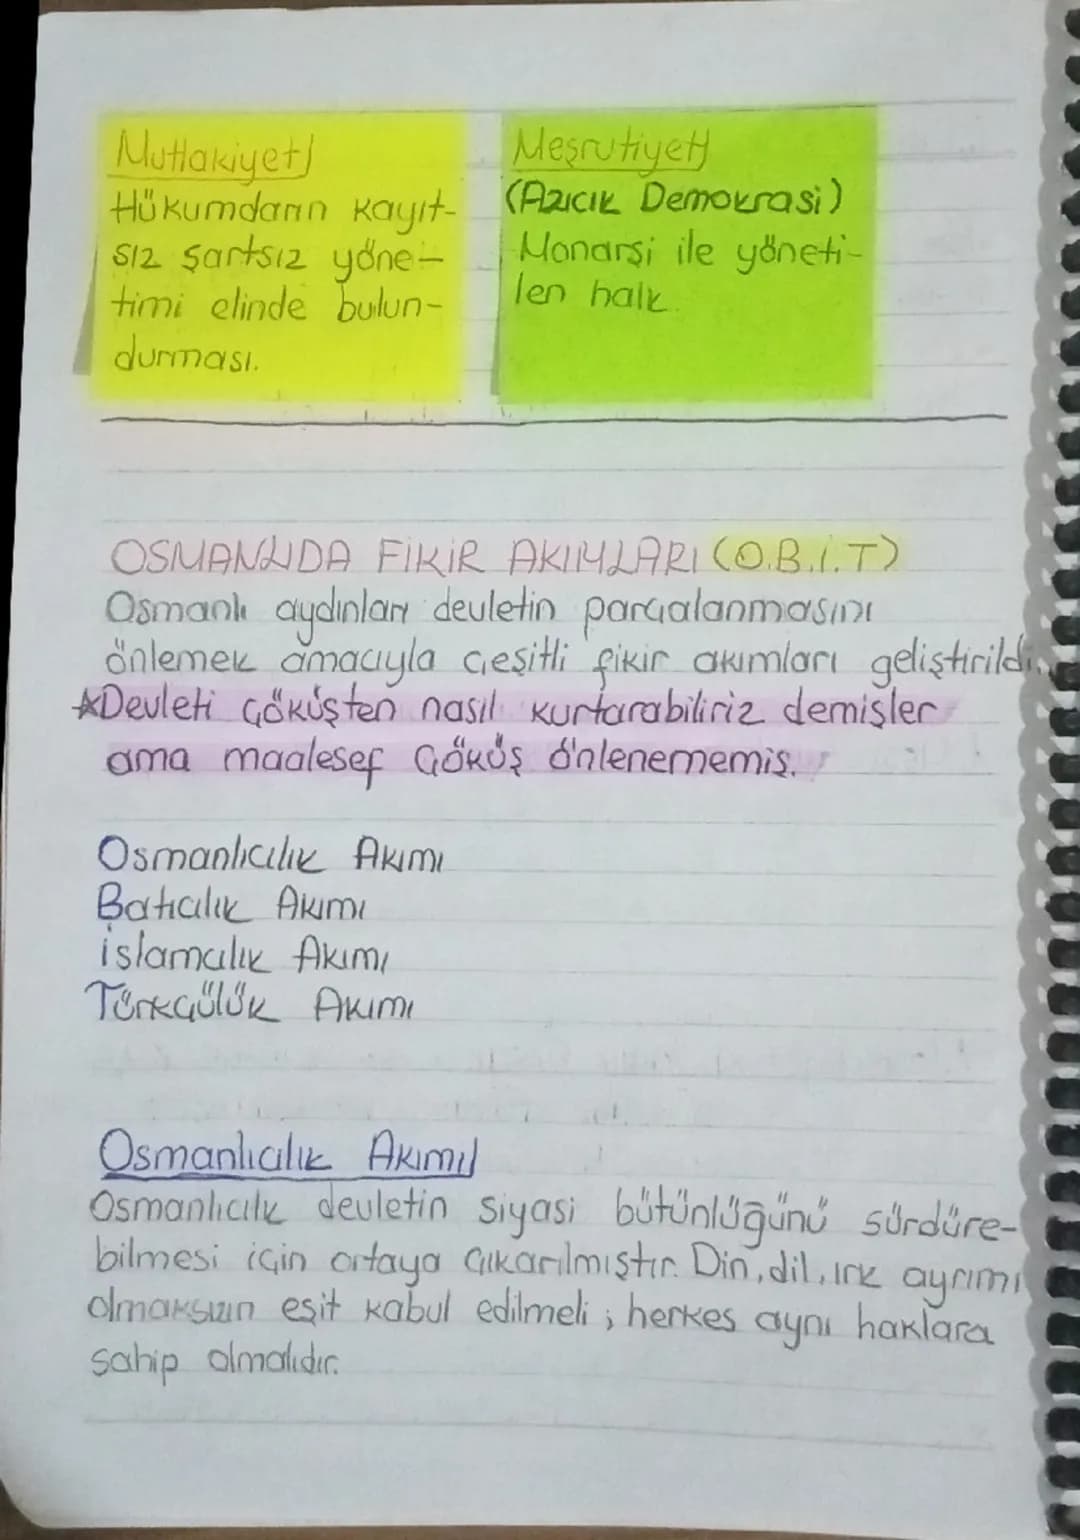 Mutlakiyet
Hükümdarın kayıt-
sız şartsız yöne-
timi elinde bulun-
durması.
Meşrutiyet
(Azıcık Demokrasi)
Monarşi ile yöneti-
len halk.
OSMANLIDA FİKİR AKIMLARI (O.B.İ.T)
Osmanlı aydınları devletin parçalanmasını
önlemek amacıyla çeşitli fikir akımları geliştirildi.
*Devleti çöküşten nasıl kurtarabiliriz demişler
ama maalesef çöküş önlenememiş.
Osmanlıcılık Akımı
Batıcılık Akımı
İslamcılık Akımı
Türkçülük Akımı
Osmanlıcılık Akımı
Osmanlıcılık devletin siyasi bütünlüğünü sürdüre-
bilmesi için ortaya çıkarılmıştır. Din, dil, ırk ayrımı
olmaksızın eşit kabul edilmeli; herkes aynı haklara
sahip olmalıdır.